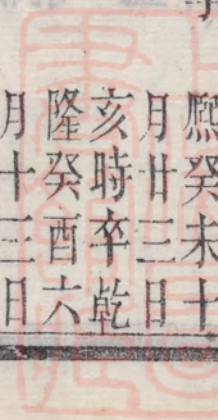 熈癸未十
月廿三日
亥時卒乾
隆癸酉六
月十三日